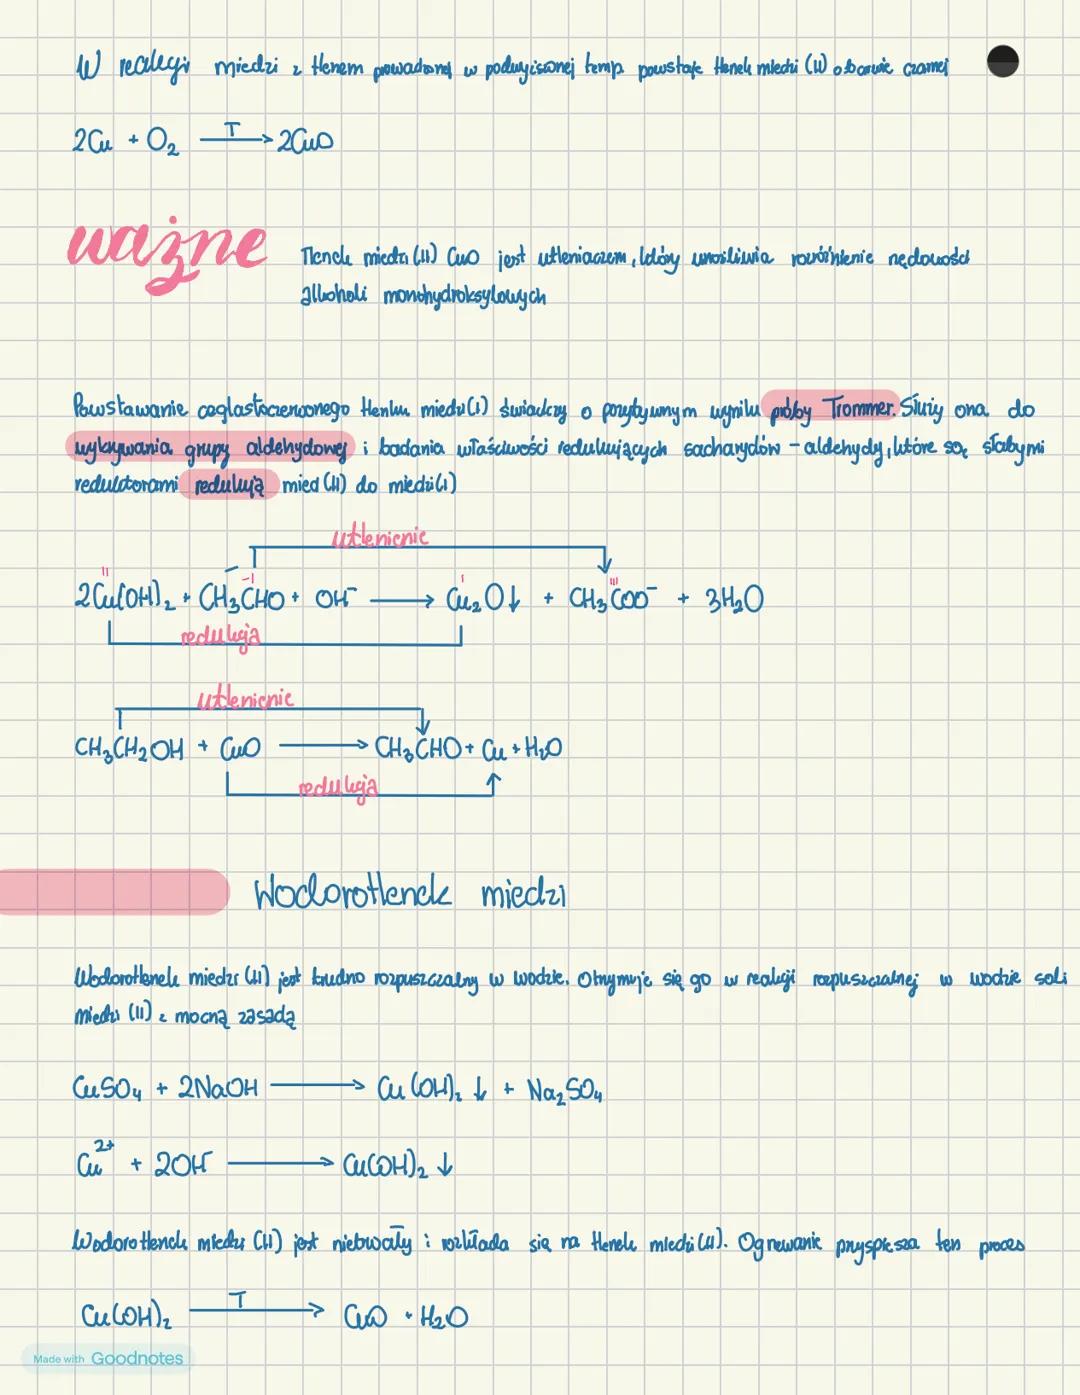 W reakcji miedzi z tlenem prowadzonej w podwyższonej temp. powstaje tlenek miedzi (II) o barwie czarnej
2Cu + O₂ —T→ 2CuO
ważne
Tlenek miedzi (II) CuO jest utleniaczem, który umożliwia rozróżnienie rzędowości
alkoholi monohydroksylowych
Powstawanie ceglastoczerwonego tlenku miedzi (I) świadczy o pozytywnym wyniku próby Trommer. Służy ona do
wykrywania grupy aldehydowej i badania właściwości redukujących sacharydów – aldehydy, które są słabymi
reduktorami redukują mied (II) do miedzi (I)
utlenienie
II -I I III
2Cu(OH)₂ + CH₃CHO + OH⁻ → Cu₂O↓ + CH₃COO⁻ + 3H₂O
redukcja
utlenienie
CH₃CH₂OH + CuO → CH₃CHO + Cu + H₂O
redukcja
Wodorotlenek miedzi
Wodorotlenek miedzi (II) jest trudno rozpuszczalny w wodzie. Otrzymuje się go w reakcji rozpuszczalnej w wodzie soli
miedzi (II) z mocną zasadą
CuSO₄ + 2NaOH → Cu(OH)₂ ↓ + Na₂SO₄
Cu²⁺ + 2OH⁻ → Cu(OH)₂ ↓
Wodorotlenek miedzi (II) jest nietrwały i rozkłada się na tlenek miedzi (II). Ogrzewanie przyspiesza ten proces
Cu(OH)₂ —T→ CuO + H₂O
Made with Goodnotes